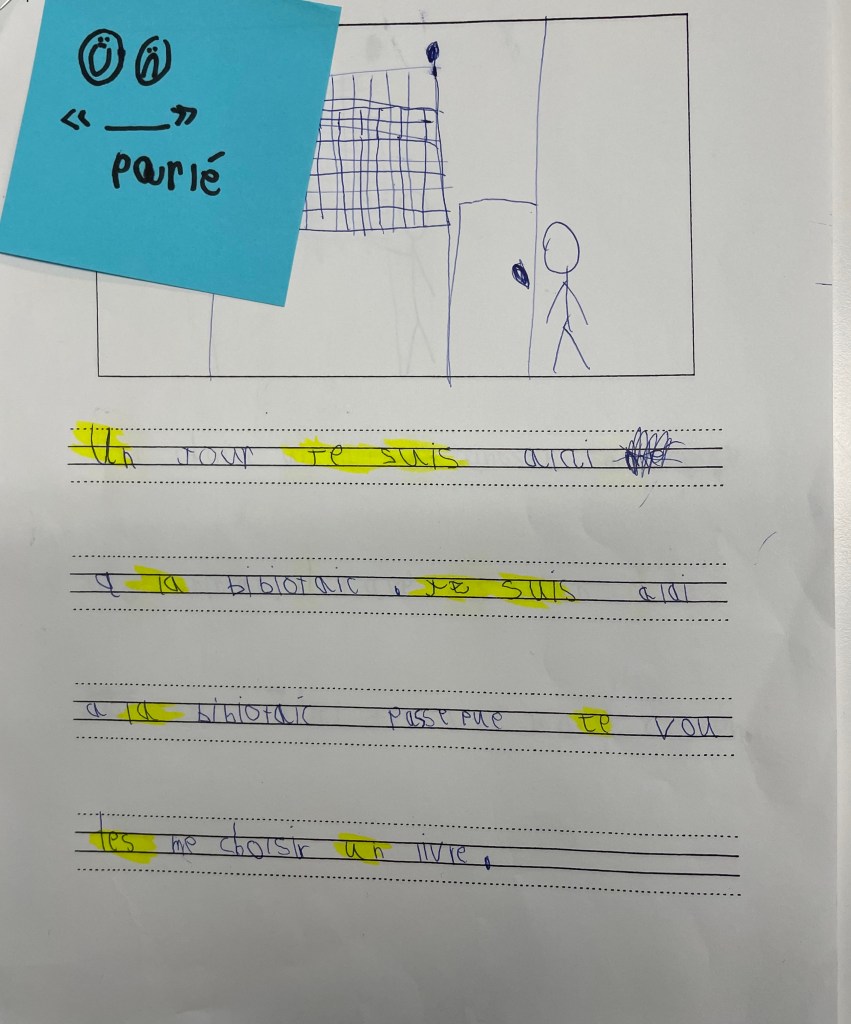 Ü ü
« ___ »
parlé
Un jour je suis alai
a la bibiotaic . je suis alai
a la bibiotaic passe que je vou
les me choisir un livre .